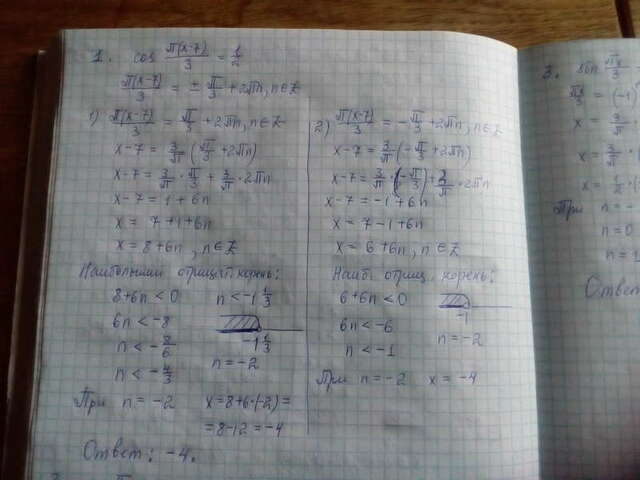 1. cos π(x-7)/3 = 1/2
π(x-7)/3 = ± π/3 + 2πn, n∈Z
1) π(x-7)/3 = π/3 + 2πn, n∈Z
x-7 = 3/π (π/3 + 2πn)
x-7 = 3/π · π/3 + 3/π · 2πn
x-7 = 1 + 6n
x = 7+1+6n
x = 8+6n, n∈Z
Наибольший отрицат. корень:
8+6n < 0 n < -1 1/3
6n < -8
n < -8/6 -1 1/3
n < -4/3 n = -2
При n = -2 x = 8+6·(-2) =
= 8-12 = -4
Ответ: -4.
2) π(x-7)/3 = -π/3 + 2πn, n∈Z
x-7 = 3/π (-π/3 + 2πn)
x-7 = 3/π · (-π/3) + 3/π · 2πn
x-7 = -1 + 6n
x = 7-1+6n
x = 6+6n, n∈Z
Наиб. отриц. корень:
6+6n < 0 -1
6n < -6
n < -1 n = -2
При n = -2 x = -4
3. sin πx/3
πx/3 = (-1)
x = 3/π
x = 3/π
При n = -
n = 0
n = 1
Ответ